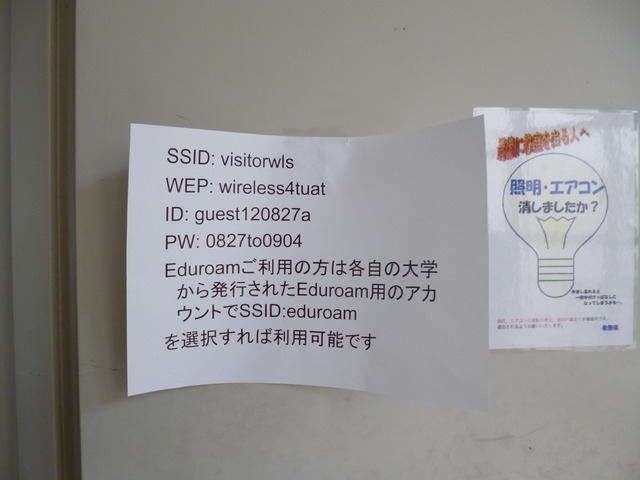 SSID: visitorwls
WEP: wireless4tuat
ID: guest120827a
PW: 0827to0904
Eduroamご利用の方は各自の大学
から発行されたEduroam用のアカ
ウントでSSID:eduroam
を選択すれば利用可能です
最後に教室を出る人へ
照明・エアコン
消しましたか?